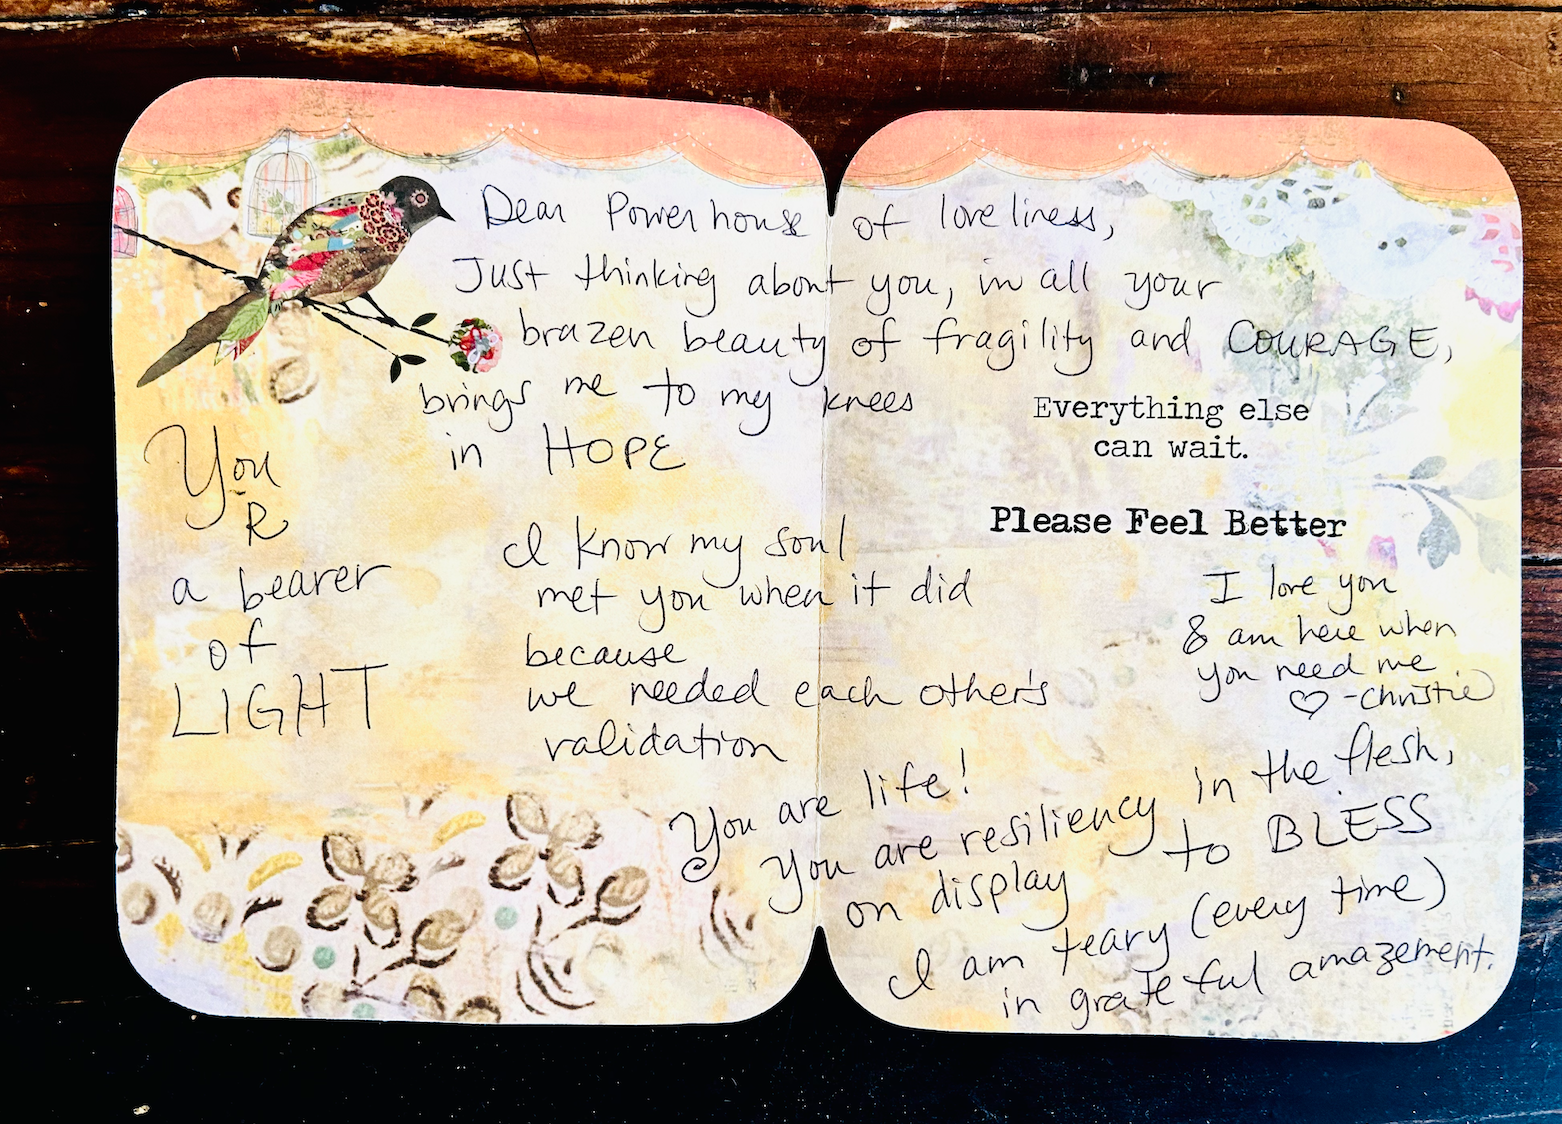 Dear Powerhouse of loveliness,
Just thinking about you, in all your
brazen beauty of fragility and COURAGE,
brings me to my knees
in HOPE
Everything else
can wait.
Please Feel Better
You
R
a bearer
of
LIGHT
I know my soul
met you when it did
because
we needed each other's
validation
I love you
& am here when
you need me
♡ -Christie
You are life!
You are resiliency in the flesh,
on display to BLESS
I am teary (every time)
in grateful amazement.